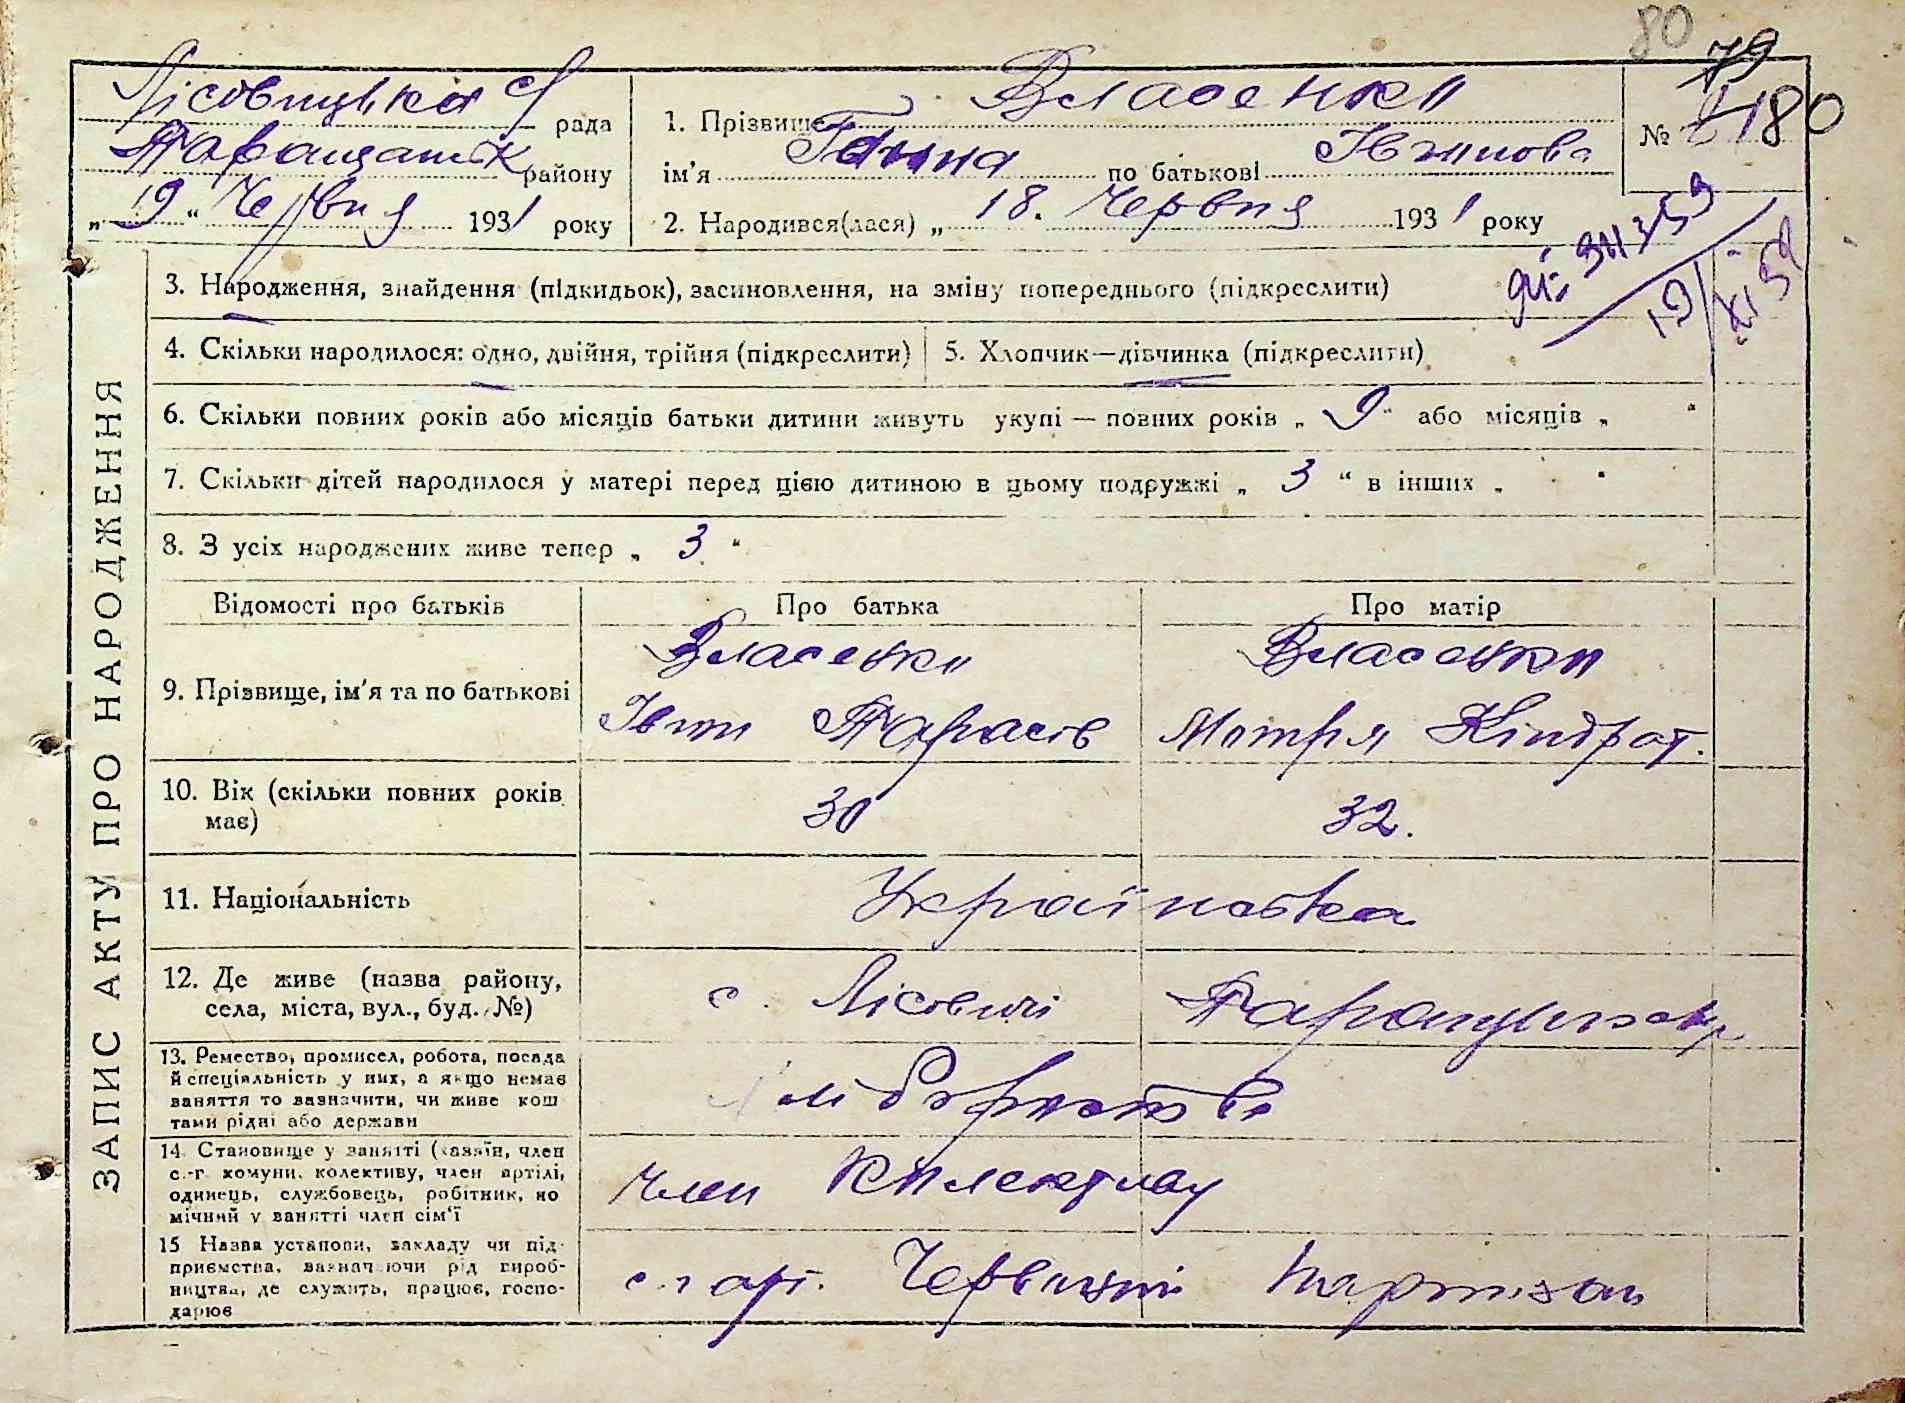 80 79
Лісовицька с/
рада
Таращанськ
району
„ 19 “ Червня 1931 року
1. Прізвище Власенко
ім'я Ганна по батькові Іванова
№ 480
2. Народився(лася) „ 18. Червня 1931 року
19/XI 59
3. Народження, знайдення (підкидьок), засиновлення, на зміну попереднього (підкреслити)
4. Скільки народилося: одно, двійня, трійня (підкреслити) 5. Хлопчик—дівчинка (підкреслити)
6. Скільки повних років або місяців батьки дитини живуть укупі — повних років „ 9 “ або місяців „ “
7. Скільки дітей народилося у матері перед цією дитиною в цьому подружжі „ 3 “ в інших „ “
8. З усіх народжених живе тепер „ 3 “
ЗАПИС АКТУ ПРО НАРОДЖЕННЯ
Відомості про батьків Про батька Про матір
9. Прізвище, ім'я та по батькові
Власенко Власенко
Іван Тарасів Мотря Кіндрат.
10. Вік (скільки повних років має)
30 32.
11. Національність
Українська
12. Де живе (назва району, села, міста, вул., буд. №)
с. Лісовичі
13. Ремество, промисел, робота, посада
й спеціяльність у них, а якщо немає
заняття то зазначити, чи живе кош
тами рідні або держави
хліборобство
14. Становище у занятті (хазяїн, член
с.-г. комуни, колективу, член артілі,
одинець, службовець, робітник, по
мічний у занятті член сім'ї
член колективу
15 Назва установи, закладу чи під-
приємства, зазначаючи рід вироб-
ництва, де служить, працює, госпо-
дарює
с.г арт. Червоний партизан